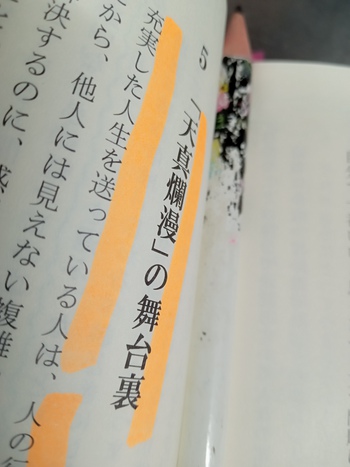 5
「天真爛漫」の舞台裏
充実した人生を送っている人は、人の
から、他人には見えない複雑
決するのに、